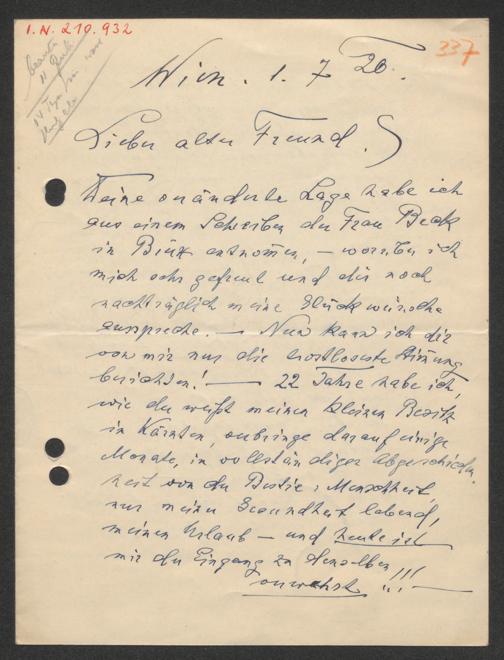 I.N. 219.932
337
Wien. 1. 7 20.
Lieber alter Freund!
Deine veränderte Lage habe ich
aus einem Schreiben der Frau Beck
in entnom̅en, – worüber ich
mich sehr gefreut und dir noch
nachträglich meine Glückwünsche
ausspreche. — Nun kann ich dir
von mir nur die trostloseste Stim̅ung
berichten! — 22 Jahre habe ich,
wie du weißt meinen kleinen Besitz
in Kärnten, verbringe darauf einige
Monate, in vollständiger Abgeschieden-
heit von der Bestie: Menschheit,
nur meiner Gesundheit lebend,
meinen Urlaub – und heute ist
mir der Eingang zu demselben
verwehrt !!! —